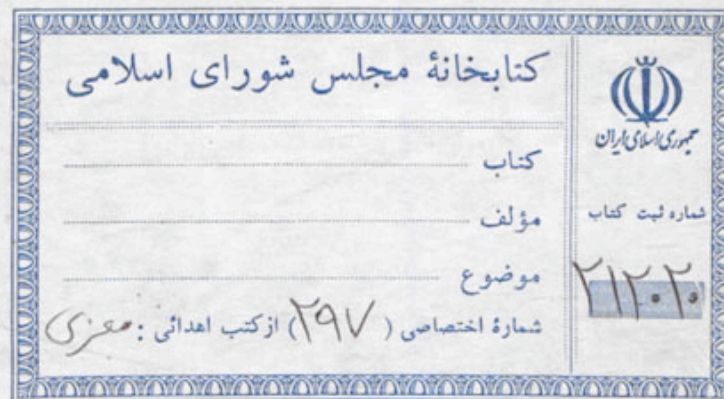 کتابخانهٔ مجلس شورای اسلامی
کتاب
مؤلف
موضوع
شمارهٔ اختصاصی ( ۲۹۷ ) از کتب اهدائی : معزی
جمهوری اسلامی ایران
شماره ثبت کتاب
۲۱۲۰۲۰